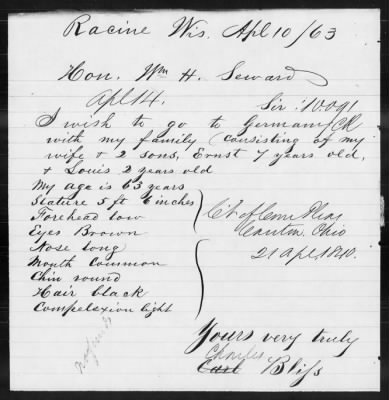 Racine Wis. Apl 10/63
Hon. Wm H. Seward
Apl 14.
Sir: 10.091
I wish to go to Germany CR
with my family (consisting of my
wife & 2 sons, Ernst 7 years old,
& Louis 2 years old
My age is 63 years
Stature 5 ft 6 inches
Forehead low
Eyes Brown
Nose long
Mouth Common
Chin round
Hair black
Compelxion light
Ct of Com Pleas
Canton Ohio
21 Apl 1840.
Yours very truly
Charles
Carl Bliss